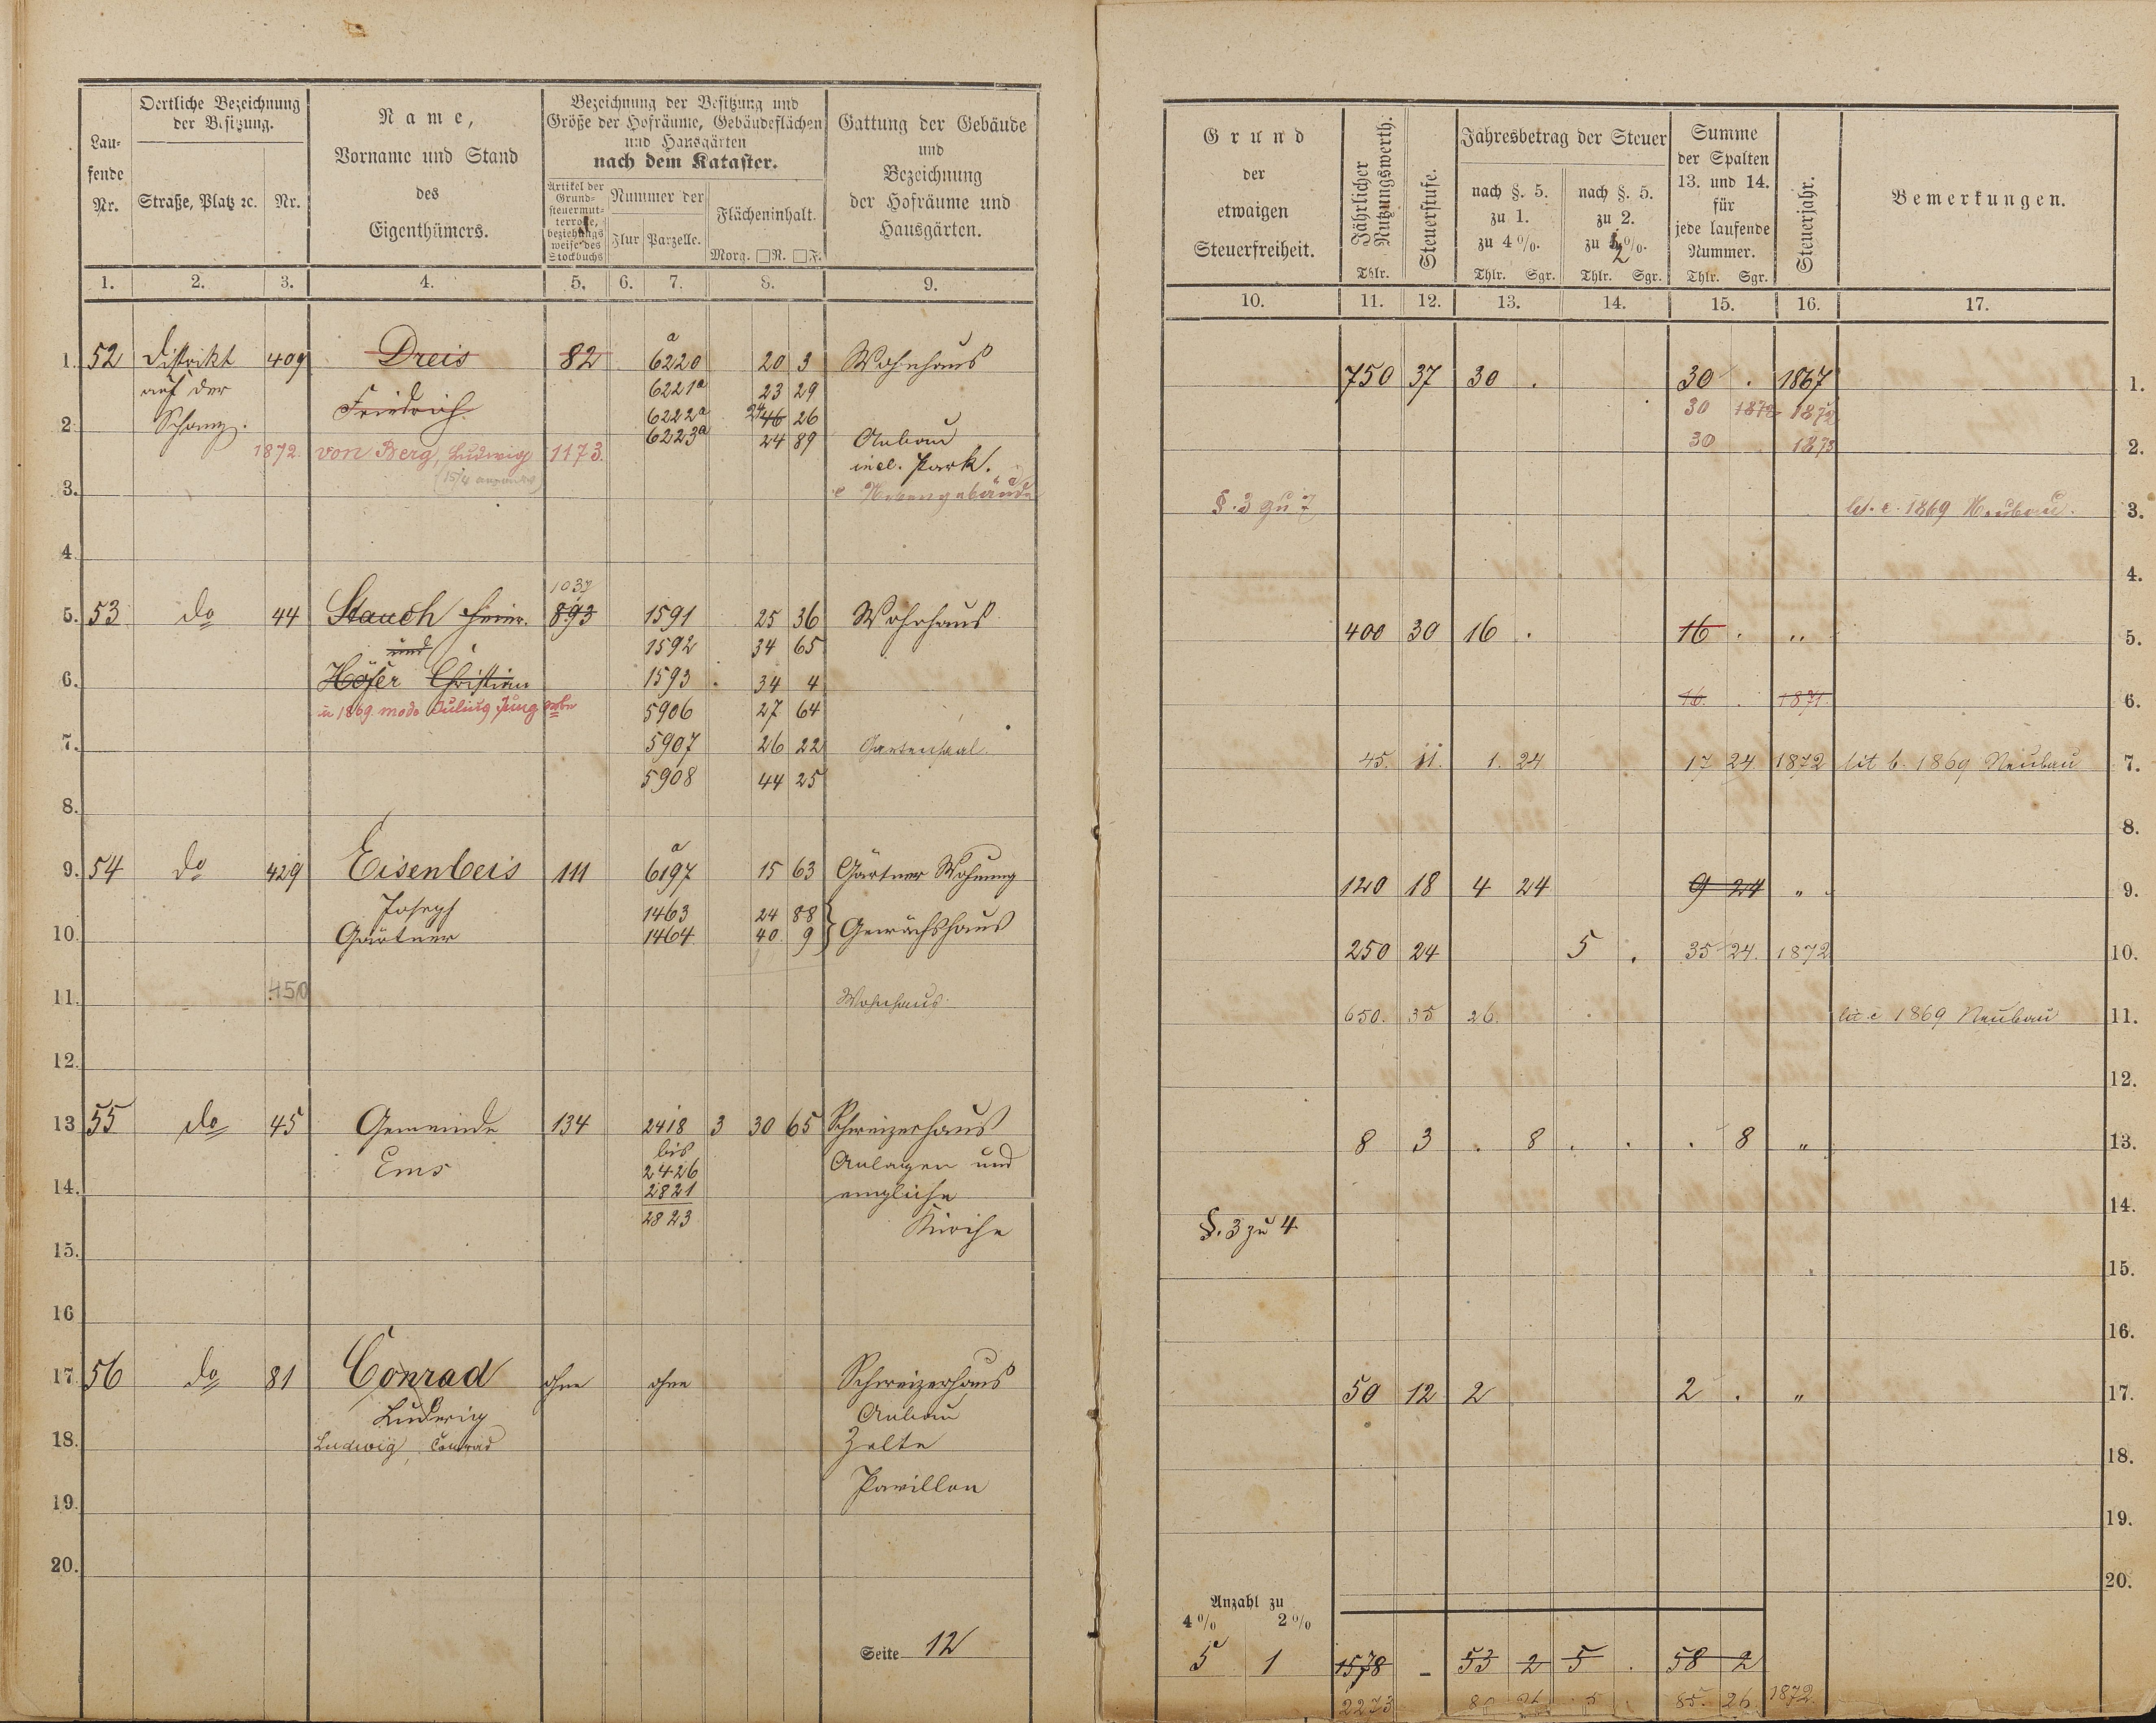 Lau-
fende
Nr.
Oertliche Bezeichnung
der Besitzung.
Straße, Platz ꝛc.
Nr.
Name,
Vorname und Stand
des
Eigenthümers.
Bezeichnung der Besitzung und
Größe der Hofräume, Gebäudeflächen
und Hausgärten
nach dem Kataster.
Artikel der
Grund-
steuermut-
terrolle,
beziehungs
weise des
Stockbuchs
Nummer der
Flur
Parzelle.
Flächeninhalt.
Morg. □R. □F.
Gattung der Gebäude
und
Bezeichnung
der Hofräume und
Hausgärten.
1. 2. 3. 4. 5. 6. 7. 8. 9.
1. 52 Distrikt 409 Dreis 82 a 6220 20 3 Wohnhaus
auf der 6221a 23 29
2. Schanz. Friedrich 6222a 24 46 26
6223a 24 89 Anbau
1872. von Berg, Ludwig 1173. incl. Park.
3. c Nebengebäude
4.
1037
5. 53 do 44 Stauch Heinr. 893 1591 25 36 Wohnhaus
und 1592 34 65
6. Höfer Christian 1593 34 4
u 1869. modo Julius Jung 5906 27 64
7. 5907 26 22 Gartensaal.
5908 44 25
8.
9. 54 do 429 Eisenbeis 111 a 6197 15 63 Gärtner Wohnung
Joseph 1463 24 88
10. Gärtner 1464 40 9 } Gewächshaus
11. 450 Wohnhaus.
12.
13 55 do 45 Gemeinde 134 2418 3 30 65 Schweizerhaus
Ems bis Anlagen und
2426
14. 2821 englische
2823 Kirche
15.
16
17 56 do 81 Conrad ohne ohne Schweizerhaus
Ludwig Anbau
18. Ludwig Conrad Zelte
Pavillon
19.
20.
Seite 12
Grund
der
etwaigen
Steuerfreiheit.
Jährlicher
Nutzungswerth.
Thlr.
Steuerstufe.
Jahresbetrag der Steuer
nach §. 5.
zu 1.
zu 4 %.
Thlr. Sgr.
nach §. 5.
zu 2.
zu 2 %.
Thlr. Sgr.
Summe
der Spalten
13. und 14.
für
jede laufende
Nummer.
Thlr. Sgr.
Steuerjahr.
Bemerkungen.
10. 11. 12. 13. 14. 15. 16. 17.
750 37 30 . 30 . 1867 1.
30 1872 1872
30 1873 2.
§. 3 zu 7 lit. c. 1869 Neubau. 3.
4.
400 30 16 . 16 . " 5.
16. . 1871. 6.
45. 11. 1. 24 17 24 1872 lit b. 1869 Neubau 7.
8.
120 18 4 24 9 24 " 9.
250 24 5 . 35 24. 1872 10.
650. 35 26. lit c 1869 Neubau 11.
12.
8 3 . 8 . . . 8 " 13.
14.
§. 3 zu 4.
15.
16.
50 12 2 2 . " 17.
18.
19.
20.
Anzahl zu
4 % 2 %
5 1 1578 - 53 2 5 . 58 2
2273 80 26 5 85. 26. 1872.